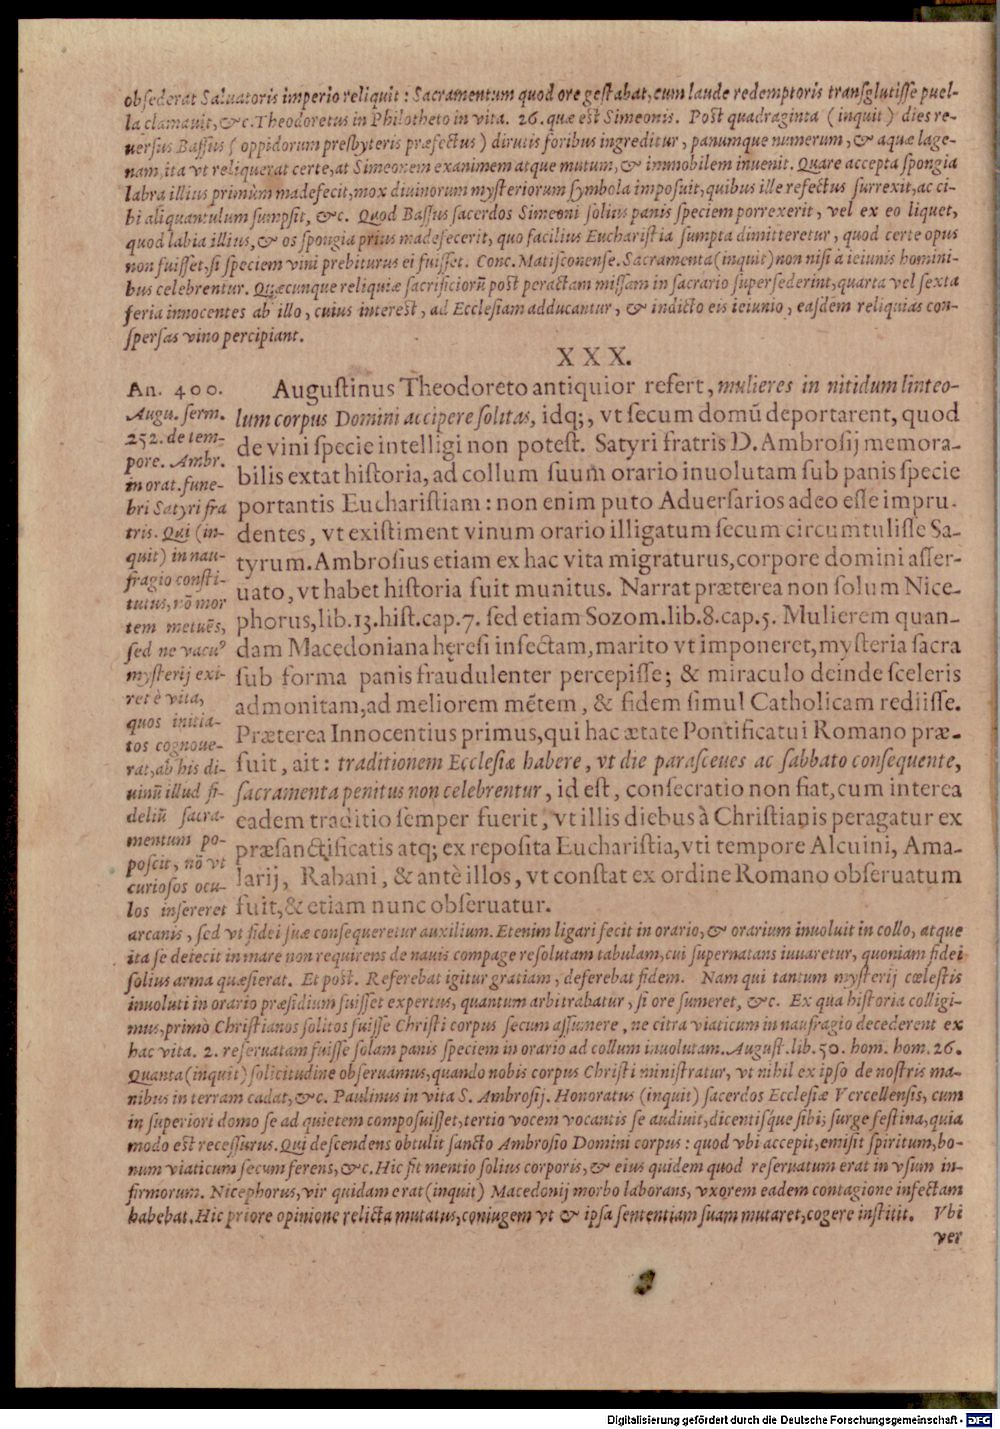 obſederat Saluatoris imperio reliquit : Sacramentum quod ore geſtabat, cum laude redemptoris tranſglutiſſe puel-
la clamauit, &c. Theodoretus in Philotheto in vita. 26. quæ eſt Simeonis. Poſt quadraginta (inquit) dies re-
uerſus Baſſus (oppidorum presbyteris præfectus) dirutis foribus ingreditur, panumque numerum, & aquæ lage-
nam, ita vt reliquerat certe, at Simeonem exanimem atque mutum, & immobilem inuenit. Quare accepta ſpongia
labra illius primùm madefecit, mox diuinorum myſteriorum ſymbola impoſuit, quibus ille refectus ſurrexit, ac ci-
bi aliquantulum ſumpſit, &c. Quod Baſſus ſacerdos Simeoni ſolius panis ſpeciem porrexerit, vel ex eo liquet,
quod labia illius, & os ſpongia prius madefecerit, quo facilius Euchariſtia ſumpta dimitteretur, quod certe opus
non fuiſſet, ſi ſpeciem vini prebiturus ei fuiſſet. Conc. Matiſconenſe. Sacramenta (inquit) non niſi à ieiunis homini-
bus celebrentur. Quæcunque reliquiæ ſacrificiorũ poſt peractam miſſam in ſacrario ſuperſederint, quarta vel ſexta
feria innocentes ab illo, cuius intereſt, ad Eccleſiam adducantur, & indicto eis ieiunio, eaſdem reliquias con-
ſperſas vino percipiant.
XXX.
An. 400.
Augu. ſerm.
252. de tem-
pore. Ambr.
in orat. fune-
bri Satyri fra
tris. Qui (in-
quit) in nau-
fragio conſti-
tutus, nõ mor
tem metuẽs,
ſed ne vacuꝰ
myſterij exi-
ret è vita,
quos initia-
tos cognoue-
rat, ab his di-
uinũ illud fi-
deliũ ſacra-
mentum po-
poſcit, nõ vt
curioſos ocu-
los inſereret
Auguſtinus Theodoreto antiquior refert, mulieres in nitidum linteo-
lum corpus Domini accipere ſolitas, idq;, vt ſecum domũ deportarent, quod
de vini ſpecie intelligi non poteſt. Satyri fratris D. Ambroſij memora-
bilis extat hiſtoria, ad collum ſuum orario inuolutam ſub panis ſpecie
portantis Euchariſtiam : non enim puto Aduerſarios adeo eſſe impru-
dentes, vt exiſtiment vinum orario illigatum ſecum circumtuliſſe Sa-
tyrum. Ambroſius etiam ex hac vita migraturus, corpore domini aſſer-
uato, vt habet hiſtoria fuit munitus. Narrat præterea non ſolum Nice-
phorus, lib. 13. hiſt. cap. 7. ſed etiam Sozom. lib. 8. cap. 5. Mulierem quan-
dam Macedoniana hęreſi infectam, marito vt imponeret, myſteria ſacra
ſub forma panis fraudulenter percepiſſe; & miraculo deinde ſceleris
admonitam, ad meliorem mẽtem, & fidem ſimul Catholicam rediiſſe.
Præterea Innocentius primus, qui hac ætate Pontificatui Romano præ-
fuit, ait : traditionem Eccleſiæ habere, vt die paraſceues ac ſabbato conſequente,
ſacramenta penitus non celebrentur, id eſt, conſecratio non fiat, cum interea
eadem traditio ſemper fuerit, vt illis diebus à Chriſtianis peragatur ex
præſanctificatis atq; ex repoſita Euchariſtia, vti tempore Alcuini, Ama-
larij, Rabani, & antè illos, vt conſtat ex ordine Romano obſeruatum
fuit, & etiam nunc obſeruatur.
arcanis, ſed vt fidei ſuæ conſequeretur auxilium. Etenim ligari fecit in orario, & orarium inuoluit in collo, atque
ita ſe deiecit in mare non requirens de nauis compage reſolutam tabulam, cui ſupernatans iuuaretur, quoniam fidei
ſolius arma quæſierat. Et poſt. Referebat igitur gratiam, deferebat fidem. Nam qui tantum myſterij cœleſtis
inuoluti in orario præſidium fuiſſet expertus, quantum arbitrabatur, ſi ore ſumeret, &c. Ex qua hiſtoria colligi-
mus, primò Chriſtianos ſolitos fuiſſe Chriſti corpus ſecum aſſumere, ne citra viaticum in naufragio decederent ex
hac vita. 2. reſeruatam fuiſſe ſolam panis ſpeciem in orario ad collum inuolutam. Auguſt. lib. 50. hom. hom. 26.
Quanta (inquit) ſolicitudine obſeruamus, quando nobis corpus Chriſti miniſtratur, vt nihil ex ipſo de noſtris ma-
nibus in terram cadat, &c. Paulinus in vita S. Ambroſij. Honoratus (inquit) ſacerdos Eccleſiæ Vercellenſis, cum
in ſuperiori domo ſe ad quietem compoſuiſſet, tertio vocem vocantis ſe audiuit, dicentiſq́ue ſibi; ſurge feſtina, quia
modo eſt receſſurus. Qui deſcendens obtulit ſancto Ambroſio Domini corpus : quod vbi accepit, emiſit ſpiritum, bo-
num viaticum ſecum ferens, &c. Hic fit mentio ſolius corporis, & eius quidem quod reſeruatum erat in vſum in-
firmorum. Nicephorus, vir quidam erat (inquit) Macedonij morbo laborans, vxorem eadem contagione infectam
habebat. Hic priore opinione relicta mutatus, coniugem vt & ipſa ſententiam ſuam mutaret, cogere inſtitit. Vbi
ver
Digitalisierung gefördert durch die Deutsche Forschungsgemeinschaft - DFG